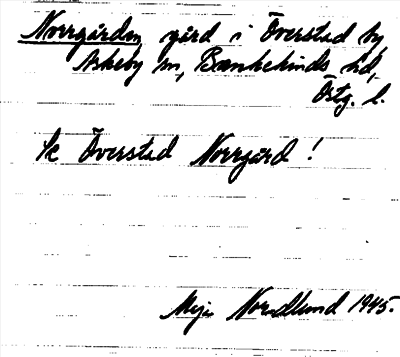 Norrgården gård i Överstad by,
Askeby sn, Bankekinds hd,
Östg. l.
Se Överstad Norrgård!
Nordlund 1945.